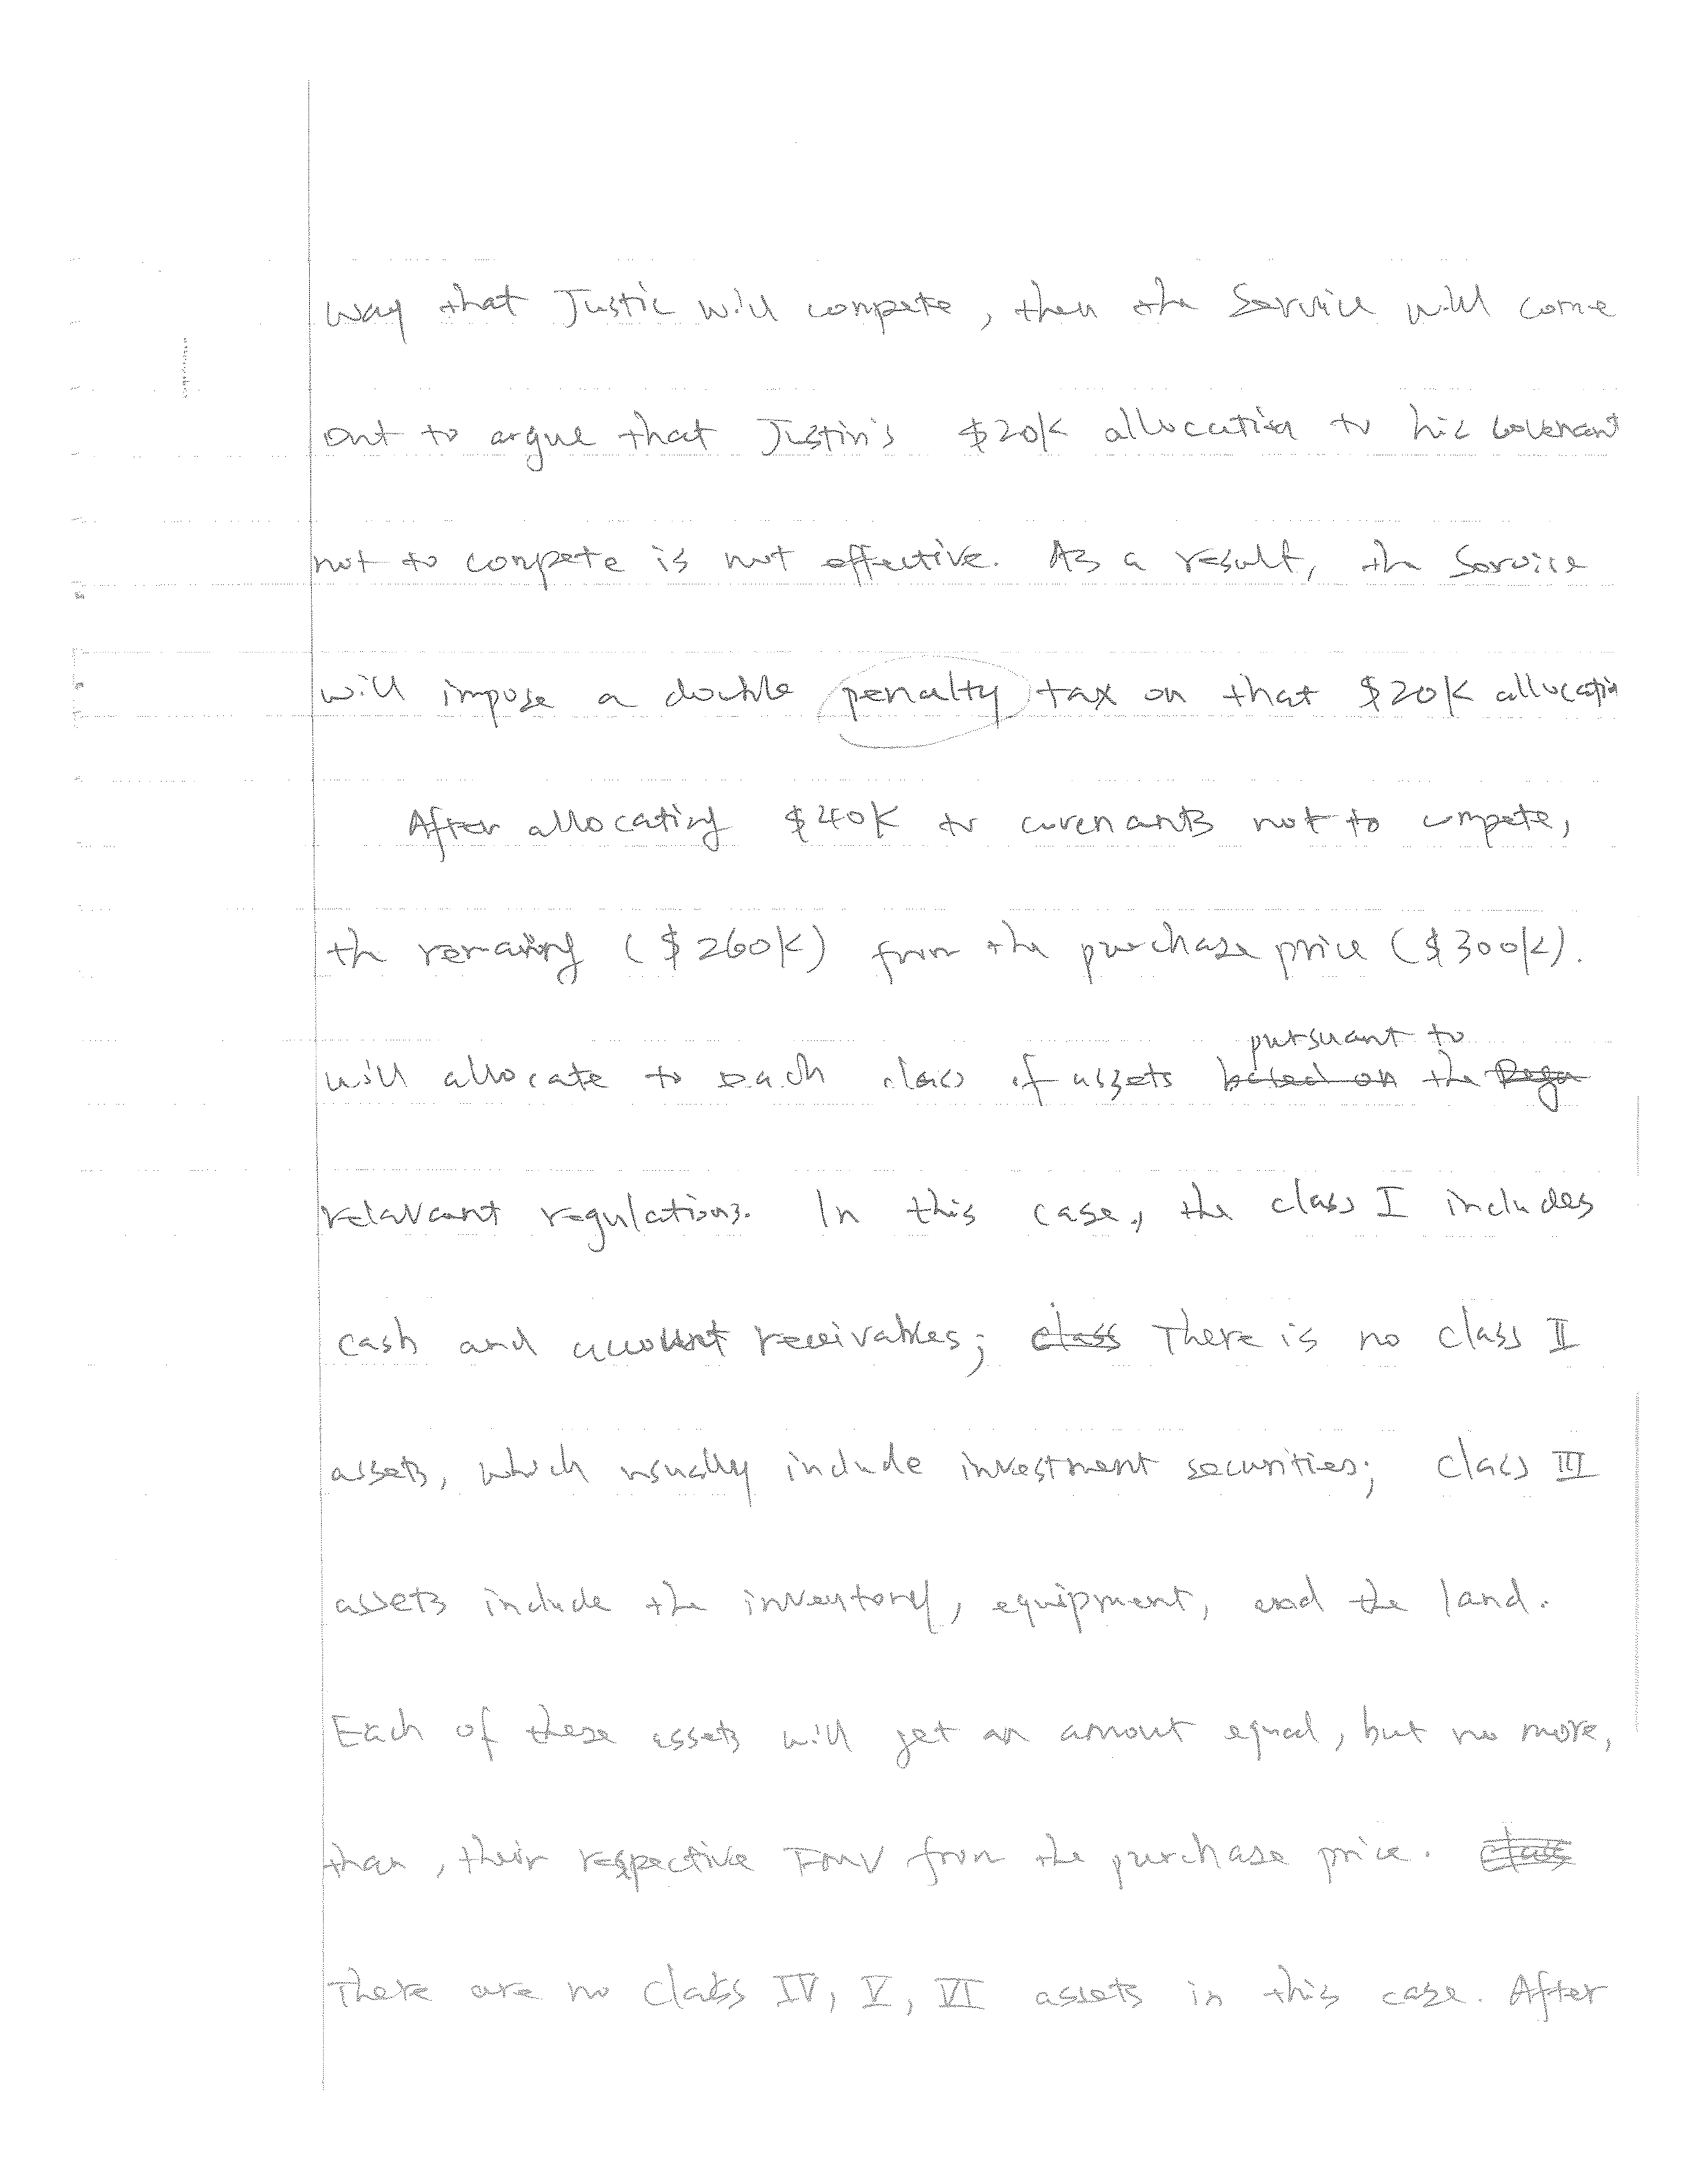 way that Justic will compete, then the Service will come
out to argue that Justin's $20K allocation to his covenant
not to compete is not effective. As a result, the Service
will impose a double penalty tax on that $20K allocatin
After allocating $40K to covenants not to compete,
the remaining ($260K) from the purchase price ($300K).
pursuant to
will allocate to each class of assets based on the Regu
relavant regulations. In this case, the class I includes
cash and account receivables; class There is no class II
assets, which usually include investment securities; class III
assets include the inventory, equipment, and the land.
Each of these assets will get an amout equal, but no more,
than, their respective FMV from the purchase price. class
There are no class IV, V, VI assets in this case. After